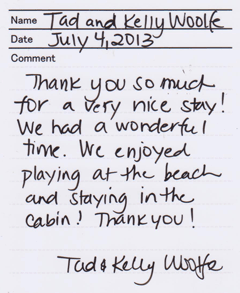 Name Tad and Kelly Woolfe
Date July 4, 2013
Comment
Thank you so much
for a very nice stay!
We had a wonderful
time. We enjoyed
playing at the beach
and staying in the
cabin! Thank you!
Tad & Kelly Woolfe